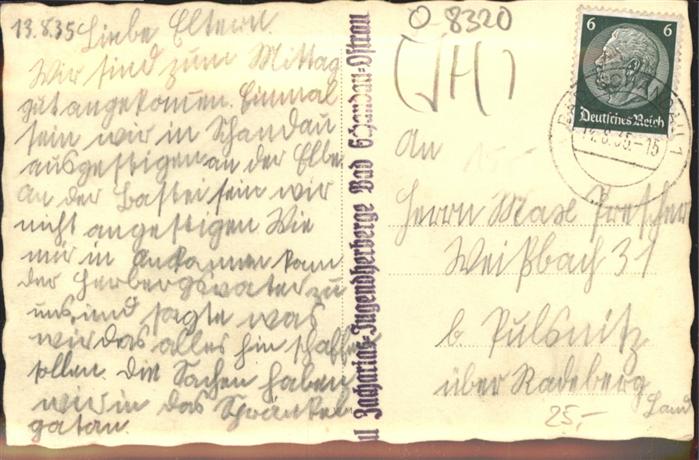 13.8.35 Liebe Eltern.
Wir sind zum Mittag
gut angekomen. Einmal
sein wir in Schandau
ausgestigen an der Elbe
An der Bastei sein wir
nicht angestigen Wie
mir in Ankamen kam
der Herbergsvater zu
uns und sagte was
wir das alles hin schaffen
sollen. die Sachen haben
wir in das Schränkel
getan.
Zacharias-Jugendherberge Bad Schandau-Ostrau
O 8320
(JH)
6 6
Deutsches Reich
BAD SCHANDAU 1
8.35.-15
An
15.-
Herrn Max Prescher
Weißbach 31
b. Pulsnitz
über Radeberg
Land
25,-